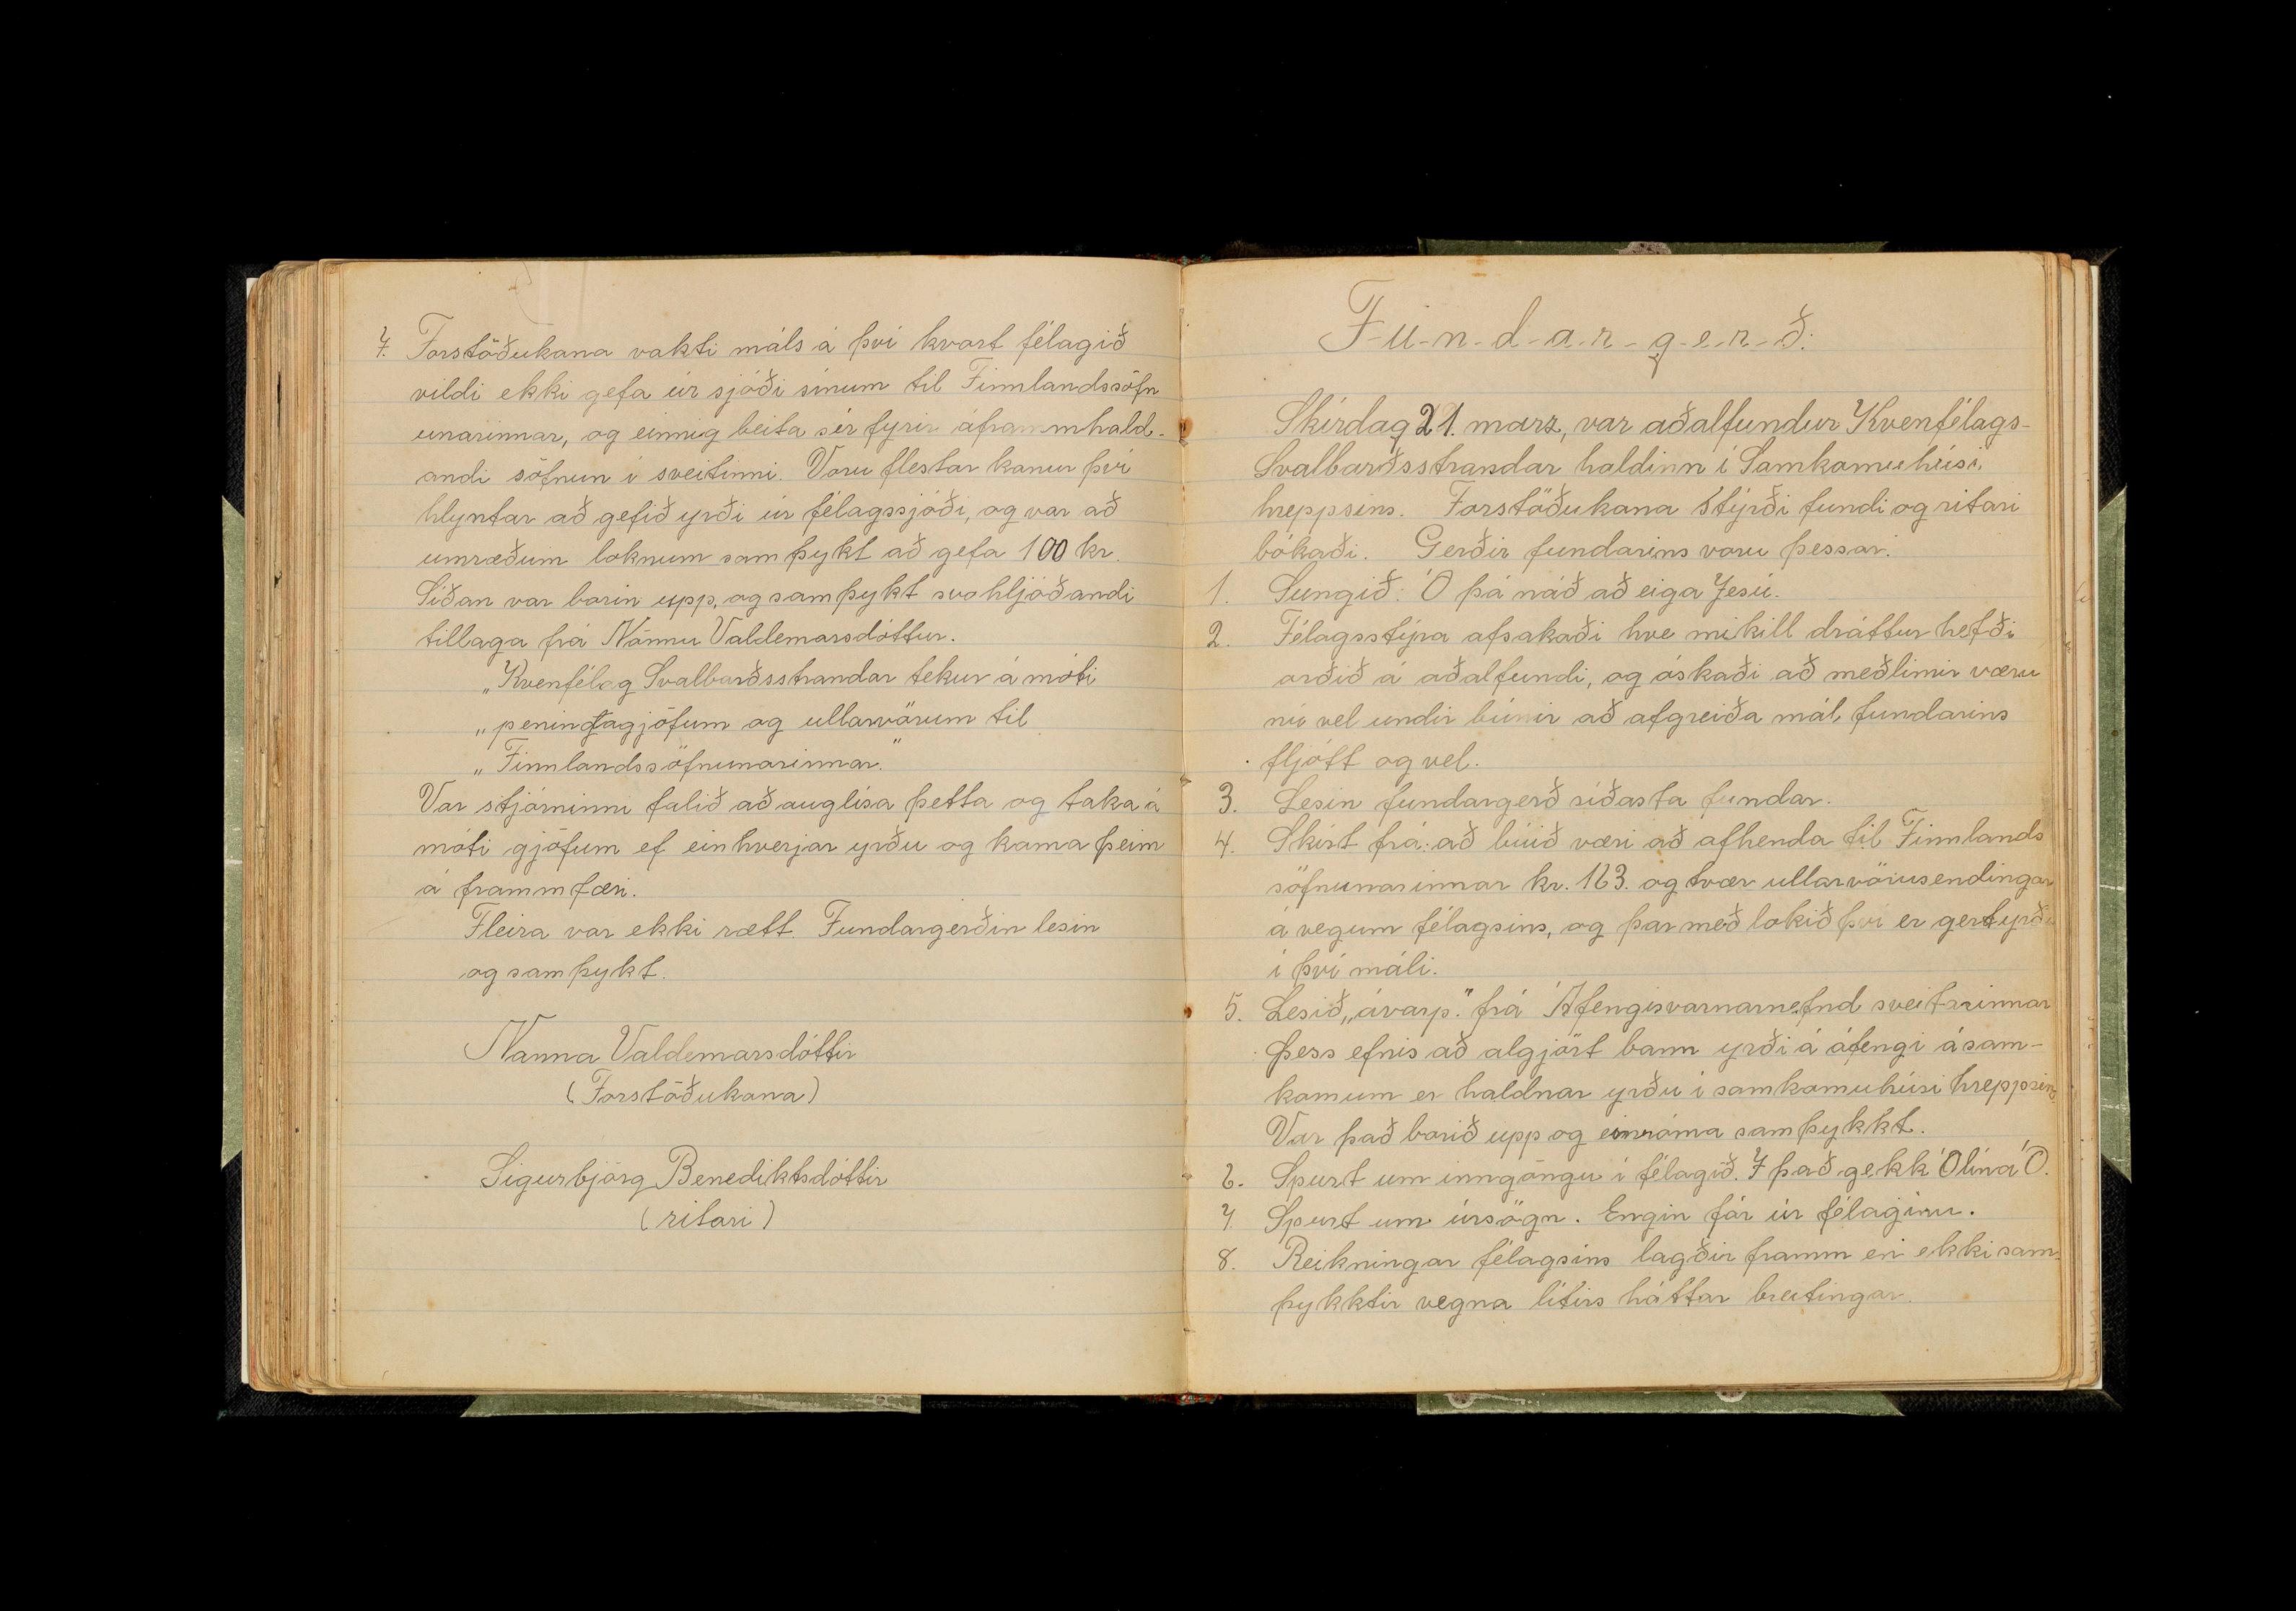 7. Forstöðukona vakti máls á því hvort félagið
vildi ekki gefa úr sjóði sínum til Finnlandssöfn
unarinnar, og einnig beita sér fyrir áframmhald-
andi söfnun í sveitinni. Voru flestar konur því
hlyntar að gefið yrði úr félagssjóði, og var að
umræðum loknum samþykt að gefa 100 kr.
Síðan var borin upp, og samþykt svohljóðandi
tillaga frá Nönnu Valdemarsdóttur.
„Kvenfélag Svalbarðsstrandar tekur á móti
„peningagjöfum og ullarvörum til
„Finnlandssöfnunarinnar."
Var stjórninni falið að auglísa þetta og taka á
móti gjöfum ef einhverjar yrðu og koma þeim
á frammfæri.
Fleira var ekki rætt. Fundargerðin lesin
og samþykt.
Nanna Valdemarsdóttir
(Forstöðukona)
Sigurbjörg Benediktsdóttir
(ritari)
F-u-n-d-a-r-g-e-r-ð:
Skírdag 21. marz, var aðalfundur Kvenfélags-
Svalbarðsstrandar haldinn í Samkomuhúsi
hreppsins. Forstöðukona stýrði fundi og ritari
bókaði. Gerðir fundarins voru þessar.
1. Sungið: Ó þá náð að eiga Jesú.
2. Félagsstýra afsakaði hve mikill dráttur hefði
orðið á aðalfundi, og óskaði að meðlimir væru
nú vel undir búnir að afgreiða mál fundarins
fljótt og vel.
3. Lesin fundargerð síðasta fundar.
4. Skírt frá: að búið væri að afhenda til Finnlands
söfnunarinnar kr. 163. og tvær ullarvörusendingar
á vegum félagsins, og þar með lokið því er gert yrði
í því máli.
5. Lesið, „ávarp." frá Áfengisvarnarnefnd sveitarinnar
þess efnis að algjört bann yrði á áfengi á sam-
komum er haldnar yrðu í samkomuhúsi hreppsins.
Var það borið upp og einróma samþykkt.
6. Spurt um inngöngu í félagið. Í það gekk Ólína Ó.
7. Spurt um úrsögn. Engin fór úr félaginu.
8. Reikningar félagsins lagðir framm en ekki sam
þykktir vegna lítirs háttar breitingar.